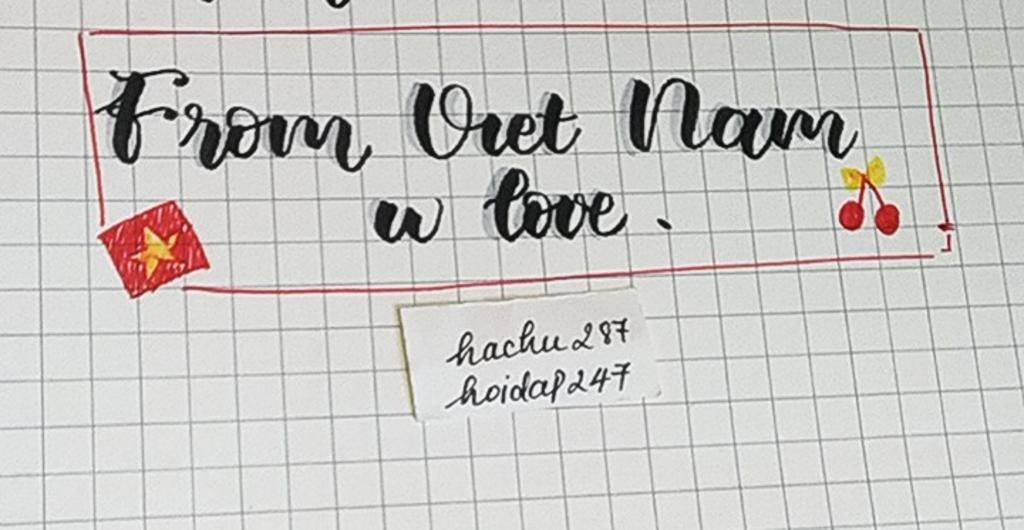 From Viet Nam
w love.
hachu287
hoidap247